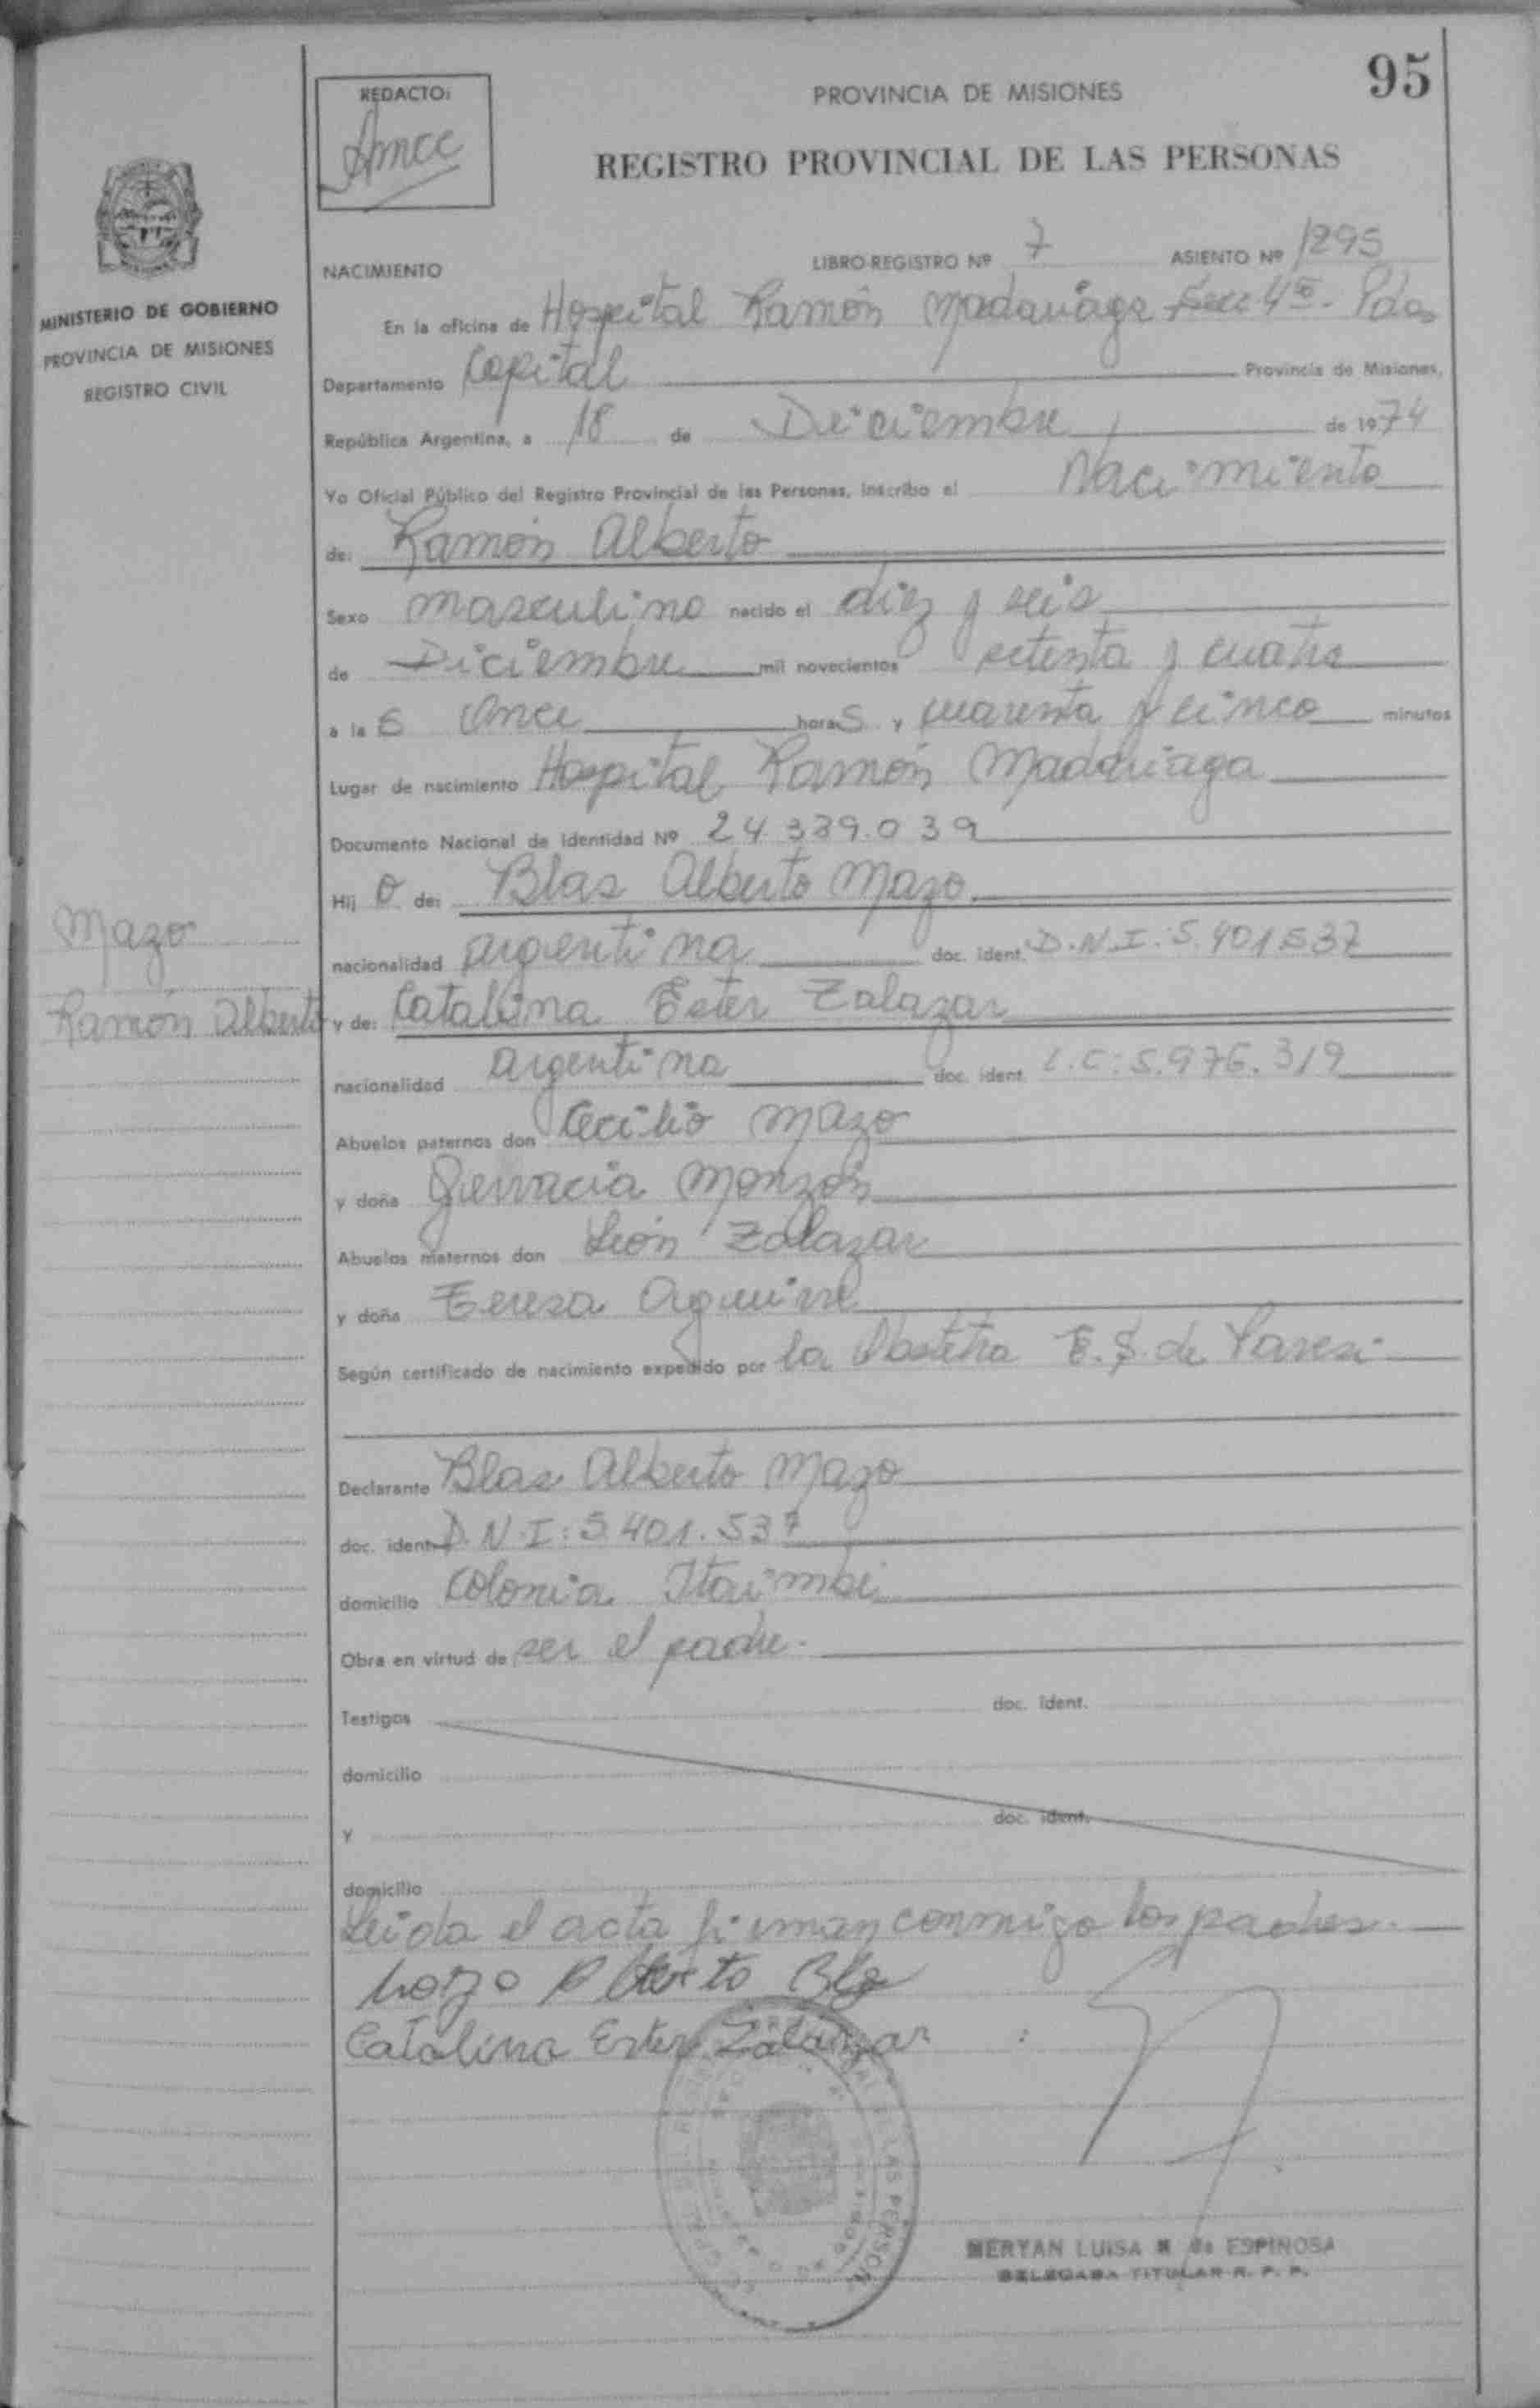 95
REDACTO:
Amcc
PROVINCIA DE MISIONES
REGISTRO PROVINCIAL DE LAS PERSONAS
MINISTERIO DE GOBIERNO
PROVINCIA DE MISIONES
REGISTRO CIVIL
NACIMIENTO
LIBRO-REGISTRO Nº 7 ASIENTO Nº 1295
En la oficina de Hospital Ramón Madariaga 4ta. Pdas
Departamento Capital Provincia de Misiones,
República Argentina, a 18 de Diciembre de 1974
Yo Oficial Público del Registro Provincial de las Personas, inscribo el Nacimiento
de: Ramón Alberto
Sexo masculino nacido el diez y seis
de Diciembre mil novecientos setenta y cuatro
a la s once horas y cuarenta y cinco minutos
Lugar de nacimiento Hospital Ramón Madariaga
Documento Nacional de Identidad Nº 24.339.039
Hij o de: Blas Alberto Mazo
Mazo
nacionalidad argentina doc. ident. D.N.I: 5.401.537
Ramón Alberto
y de: Catalina Ester Zalazar
nacionalidad argentina doc. ident. L.C: 5.976.319
Abuelos paternos don Cecilio Mazo
y doña Gervacia Monzón
Abuelos maternos don León Zalazar
y doña Teresa Aguirre
Según certificado de nacimiento expedido por la Obstetra E. S. de
Declarante Blas Alberto Mazo
doc. ident. D.N.I: 5.401.537
domicilio Colonia Itaimbé
Obra en virtud de ser el padre.
Testigos doc. ident.
domicilio
y doc. ident.
domicilio
Leida el acta firman conmigo los padres.
Mazo Alberto Bla
Catalina Ester Zalazar
MERYAN LUISA de ESPINOSA
DELEGADA TITULAR R. P. P.